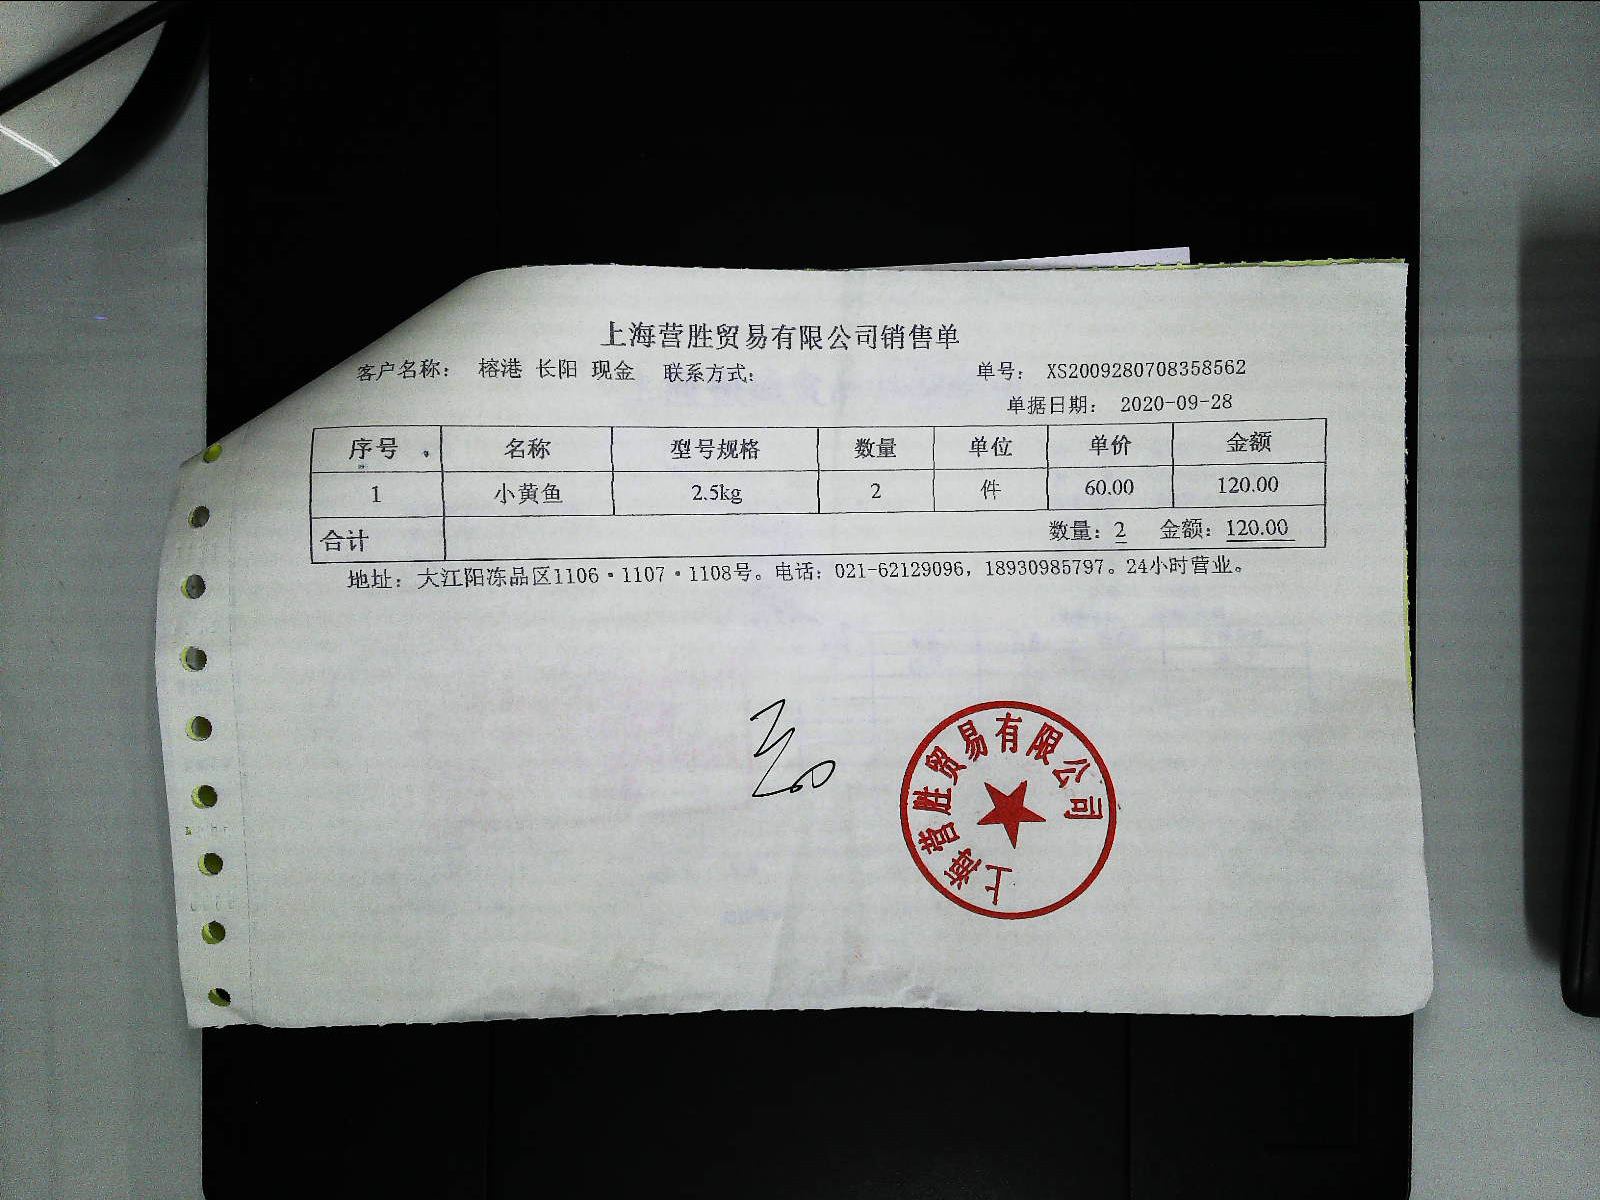 上海营胜贸易有限公司销售单
客户名称： 榕港 长阳 现金 联系方式： 单号： XS2009280708358562
单据日期： 2020-09-28
序号 名称 型号规格 数量 单位 单价 金额
1 小黄鱼 2.5kg 2 件 60.00 120.00
合计 数量：2 金额：120.00
地址：大江阳冻品区1106·1107·1108号。电话：021-62129096，18930985797。24小时营业。
上海营胜贸易有限公司